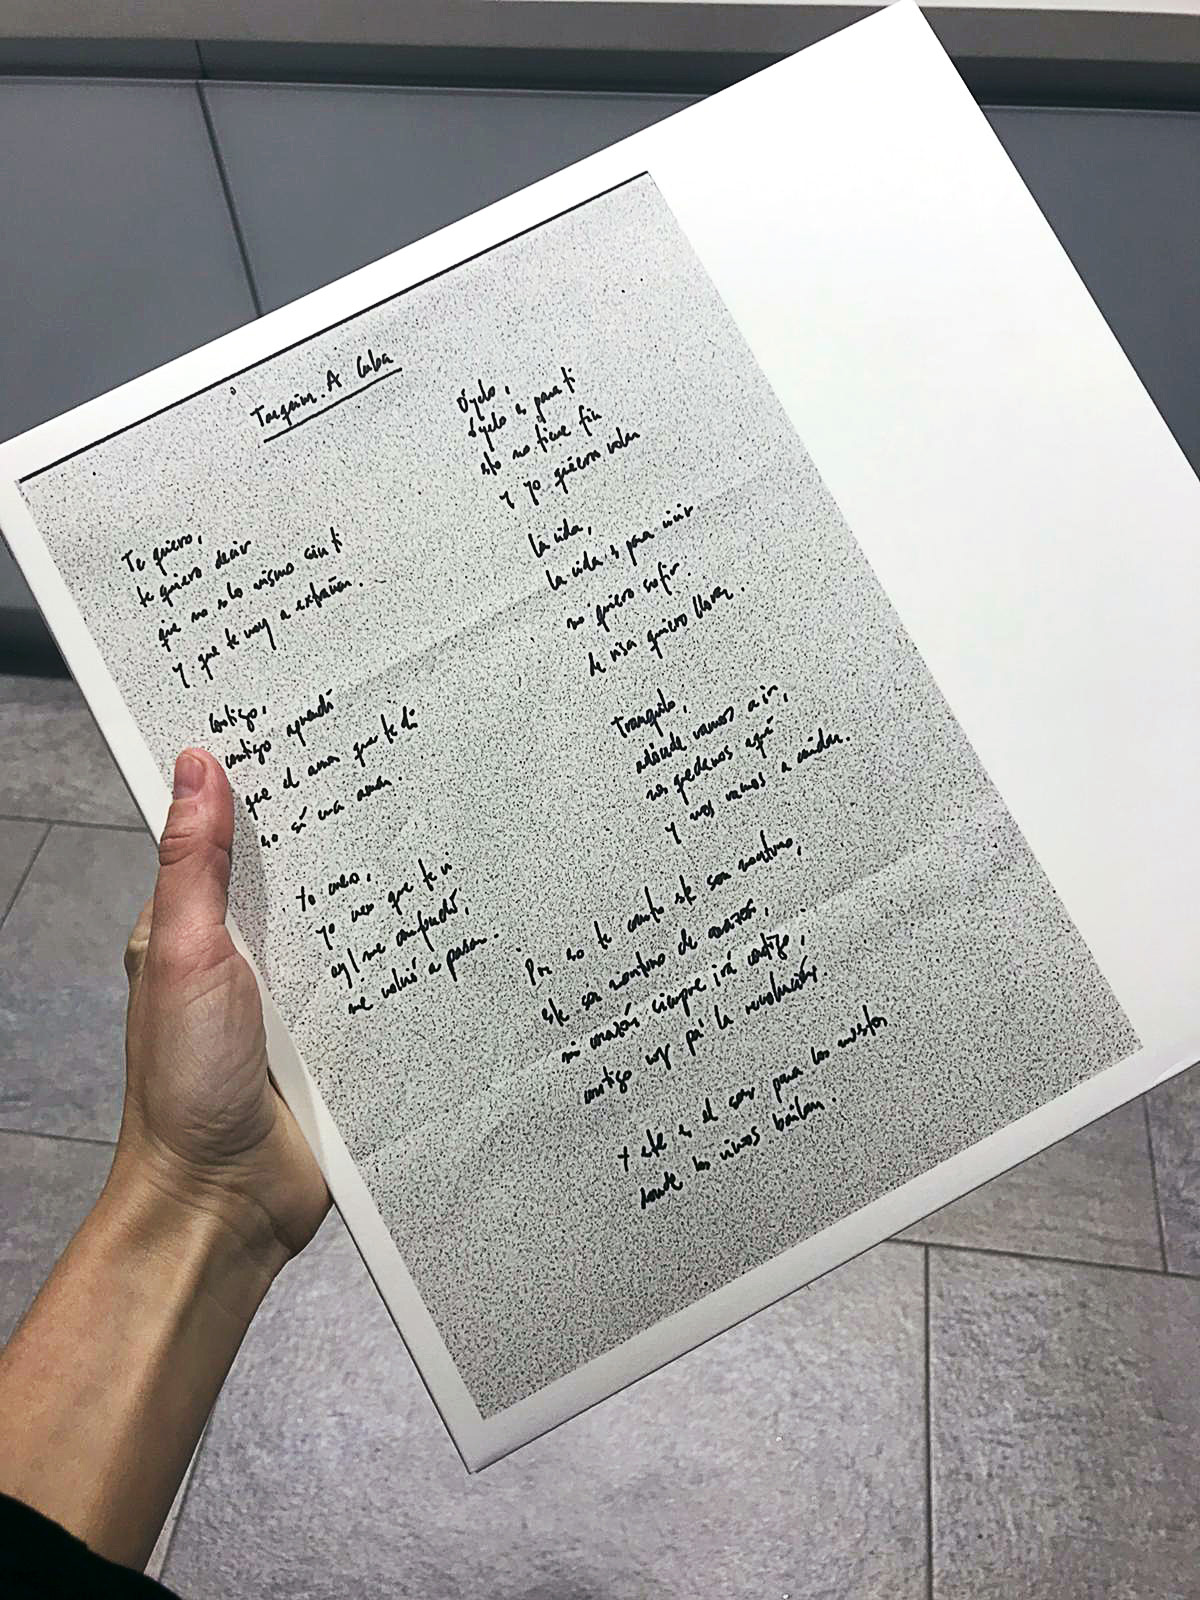 Tarquim. A Cuba
Te quiero,
te quiero decir
que no es lo mismo sin ti
y que te voy a extrañar.
Contigo,
contigo aprendí
que el amor que te di
eso sí era amar.
Yo creo,
yo creo que te vi
ay! me confundí,
me volvió a pasar.
Óyelo,
óyelo es para ti
esto no tiene fin
y yo quiero volar
La vida,
la vida es para vivir
no quiero sufrir
de risa quiero llorar.
Tranquilo,
adónde vamos a ir,
nos quedamos aquí
y nos vamos a cuidar.
Por eso te canto este son montuno,
este son montuno de corazón,
mi corazón siempre irá contigo,
contigo voy pa' la revolución,
Y este es el son para los muertos
donde los vivos bailan.